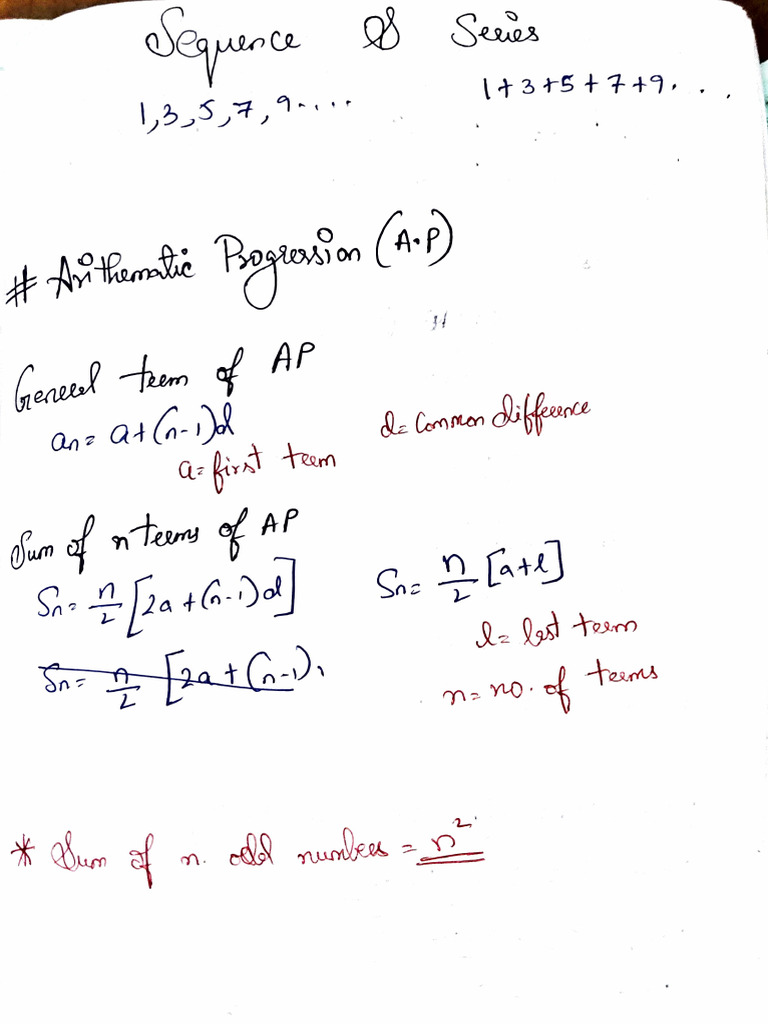 Sequence & Series
1,3,5,7,9.... 1+3+5+7+9....
# Arithematic Progression (A.P)
General term of AP
an = a+(n-1)d d= Common difference
a= first term
Sum of n terms of AP
Sn= n/2 [2a+(n-1)d] Sn= n/2 [a+l]
l= last term
Sn= n/2 [2a+(n-1),
n= no. of terms
* Sum of n. odd numbers = n²